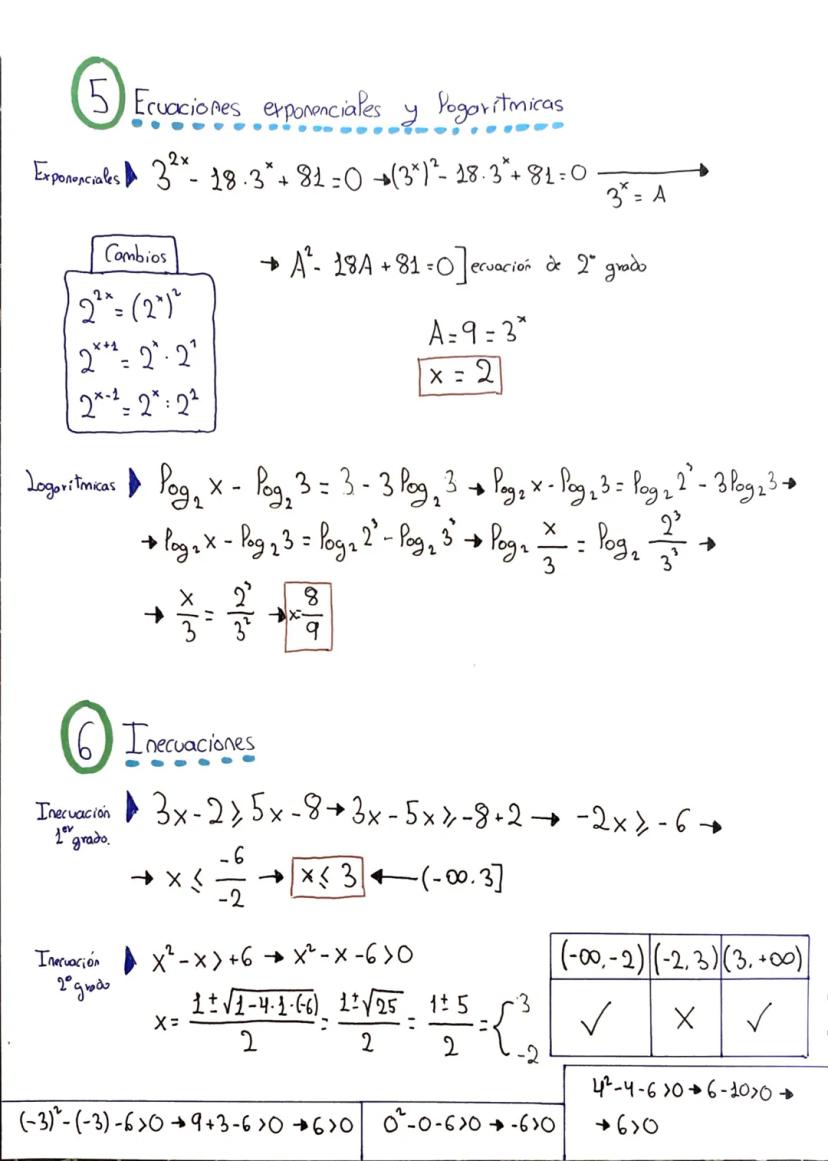 5 Ecuaciones exponenciales y logarítmicas
Exponenciales ▶ 3^2x - 18·3^x + 81 = 0 → (3^x)^2 - 18·3^x + 81 = 0 → 3^x = A
→ A^2 - 18A + 81 = 0] ecuación de 2º grado
A = 9 = 3^x
x = 2
Cambios
2^2x = (2^x)^2
2^x+1 = 2^x · 2^1
2^x-1 = 2^x : 2^1
Logarítmicas ▶ log₂ x - log₂ 3 = 3 - 3 log₂ 3 → log₂ x - log₂ 3 = log₂ 2^3 - 3 log₂ 3 →
→ log₂ x - log₂ 3 = log₂ 2^3 - log₂ 3^3 → log₂ x/3 = log₂ 2^3/3^3 →
→ x/3 = 2^3/3^2 → x = 8/9
6 Inecuaciones
Inecuación 1er grado. ▶ 3x - 2 ≥ 5x - 8 → 3x - 5x ≥ -8 + 2 → -2x ≥ -6 →
→ x ≤ -6/-2 → x ≤ 3 ← (-∞. 3]
Inecuación 2º grado ▶ x^2 - x > +6 → x^2 - x - 6 > 0
x = 1 ± √1-4·1·(-6)/2 = 1 ± √25/2 = 1 ± 5/2 = { 3
-2
(-∞, -2) (-2, 3) (3, +∞)
✓ X ✓
(-3)^2 - (-3) - 6 > 0 → 9 + 3 - 6 > 0 → 6 > 0
0^2 - 0 - 6 > 0 → -6 > 0
4^2 - 4 - 6 > 0 → 6 - 10 > 0 →
→ 6 > 0